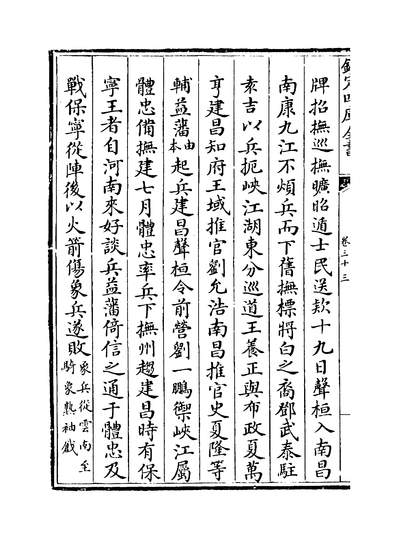 欽定四庫全書
卷三十三
牌招撫巡撫曠昭遁士民送款十九日聲桓入南昌
南康九江不煩兵而下舊撫標將白之裔鄧武泰駐
袁吉以兵扼峽江湖東分巡道王養正與布政夏萬
亨建昌知府王域推官劉允浩南昌推官史夏隆等
輔益藩由本起兵建昌聲桓令前營劉一鵬禦峽江屬
體忠備撫建七月體忠率兵下撫州趨建昌時有保
寧王者自河南來好談兵益藩倚信之通于體忠及
戰保寧從陣後以火箭傷象兵遂敗象兵從雲南至騎象熟袖戲